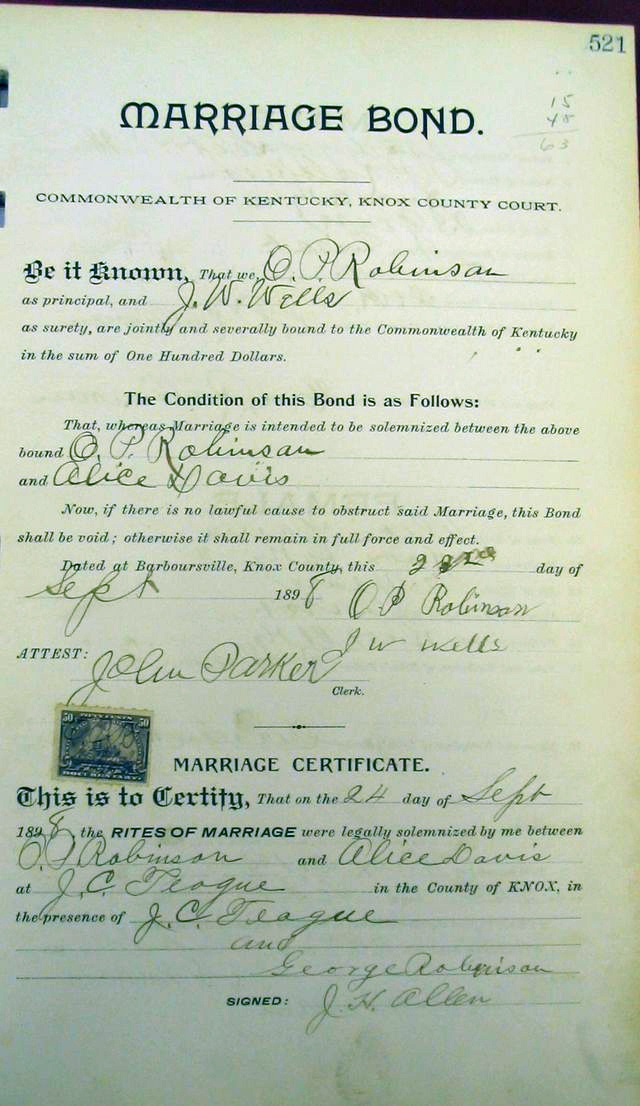 521
15
48
63
MARRIAGE BOND.
COMMONWEALTH OF KENTUCKY, KNOX COUNTY COURT.
Be it Known, That we, O. P. Robinson
as principal, and J. W. Wells
as surety, are jointly and severally bound to the Commonwealth of Kentucky
in the sum of One Hundred Dollars.
The Condition of this Bond is as Follows:
That, whereas Marriage is intended to be solemnized between the above
bound O. P. Robinson
and Alice Davis
Now, if there is no lawful cause to obstruct said Marriage, this Bond
shall be void; otherwise it shall remain in full force and effect.
Dated at Barboursville, Knox County, this day of
Sept 1898 O P Robinson
J W Wells
ATTEST: John Parker
Clerk.
50 FIFTY CENTS 50
DOCUMENTARY
MARRIAGE CERTIFICATE.
This is to Certify, That on the 24 day of Sept
1898, the RITES OF MARRIAGE were legally solemnized by me between
O. P. Robinson and Alice Davis
at J. C. Teague in the County of KNOX, in
the presence of J. C. Teague
and
George Robinson
SIGNED: J. H. Allen